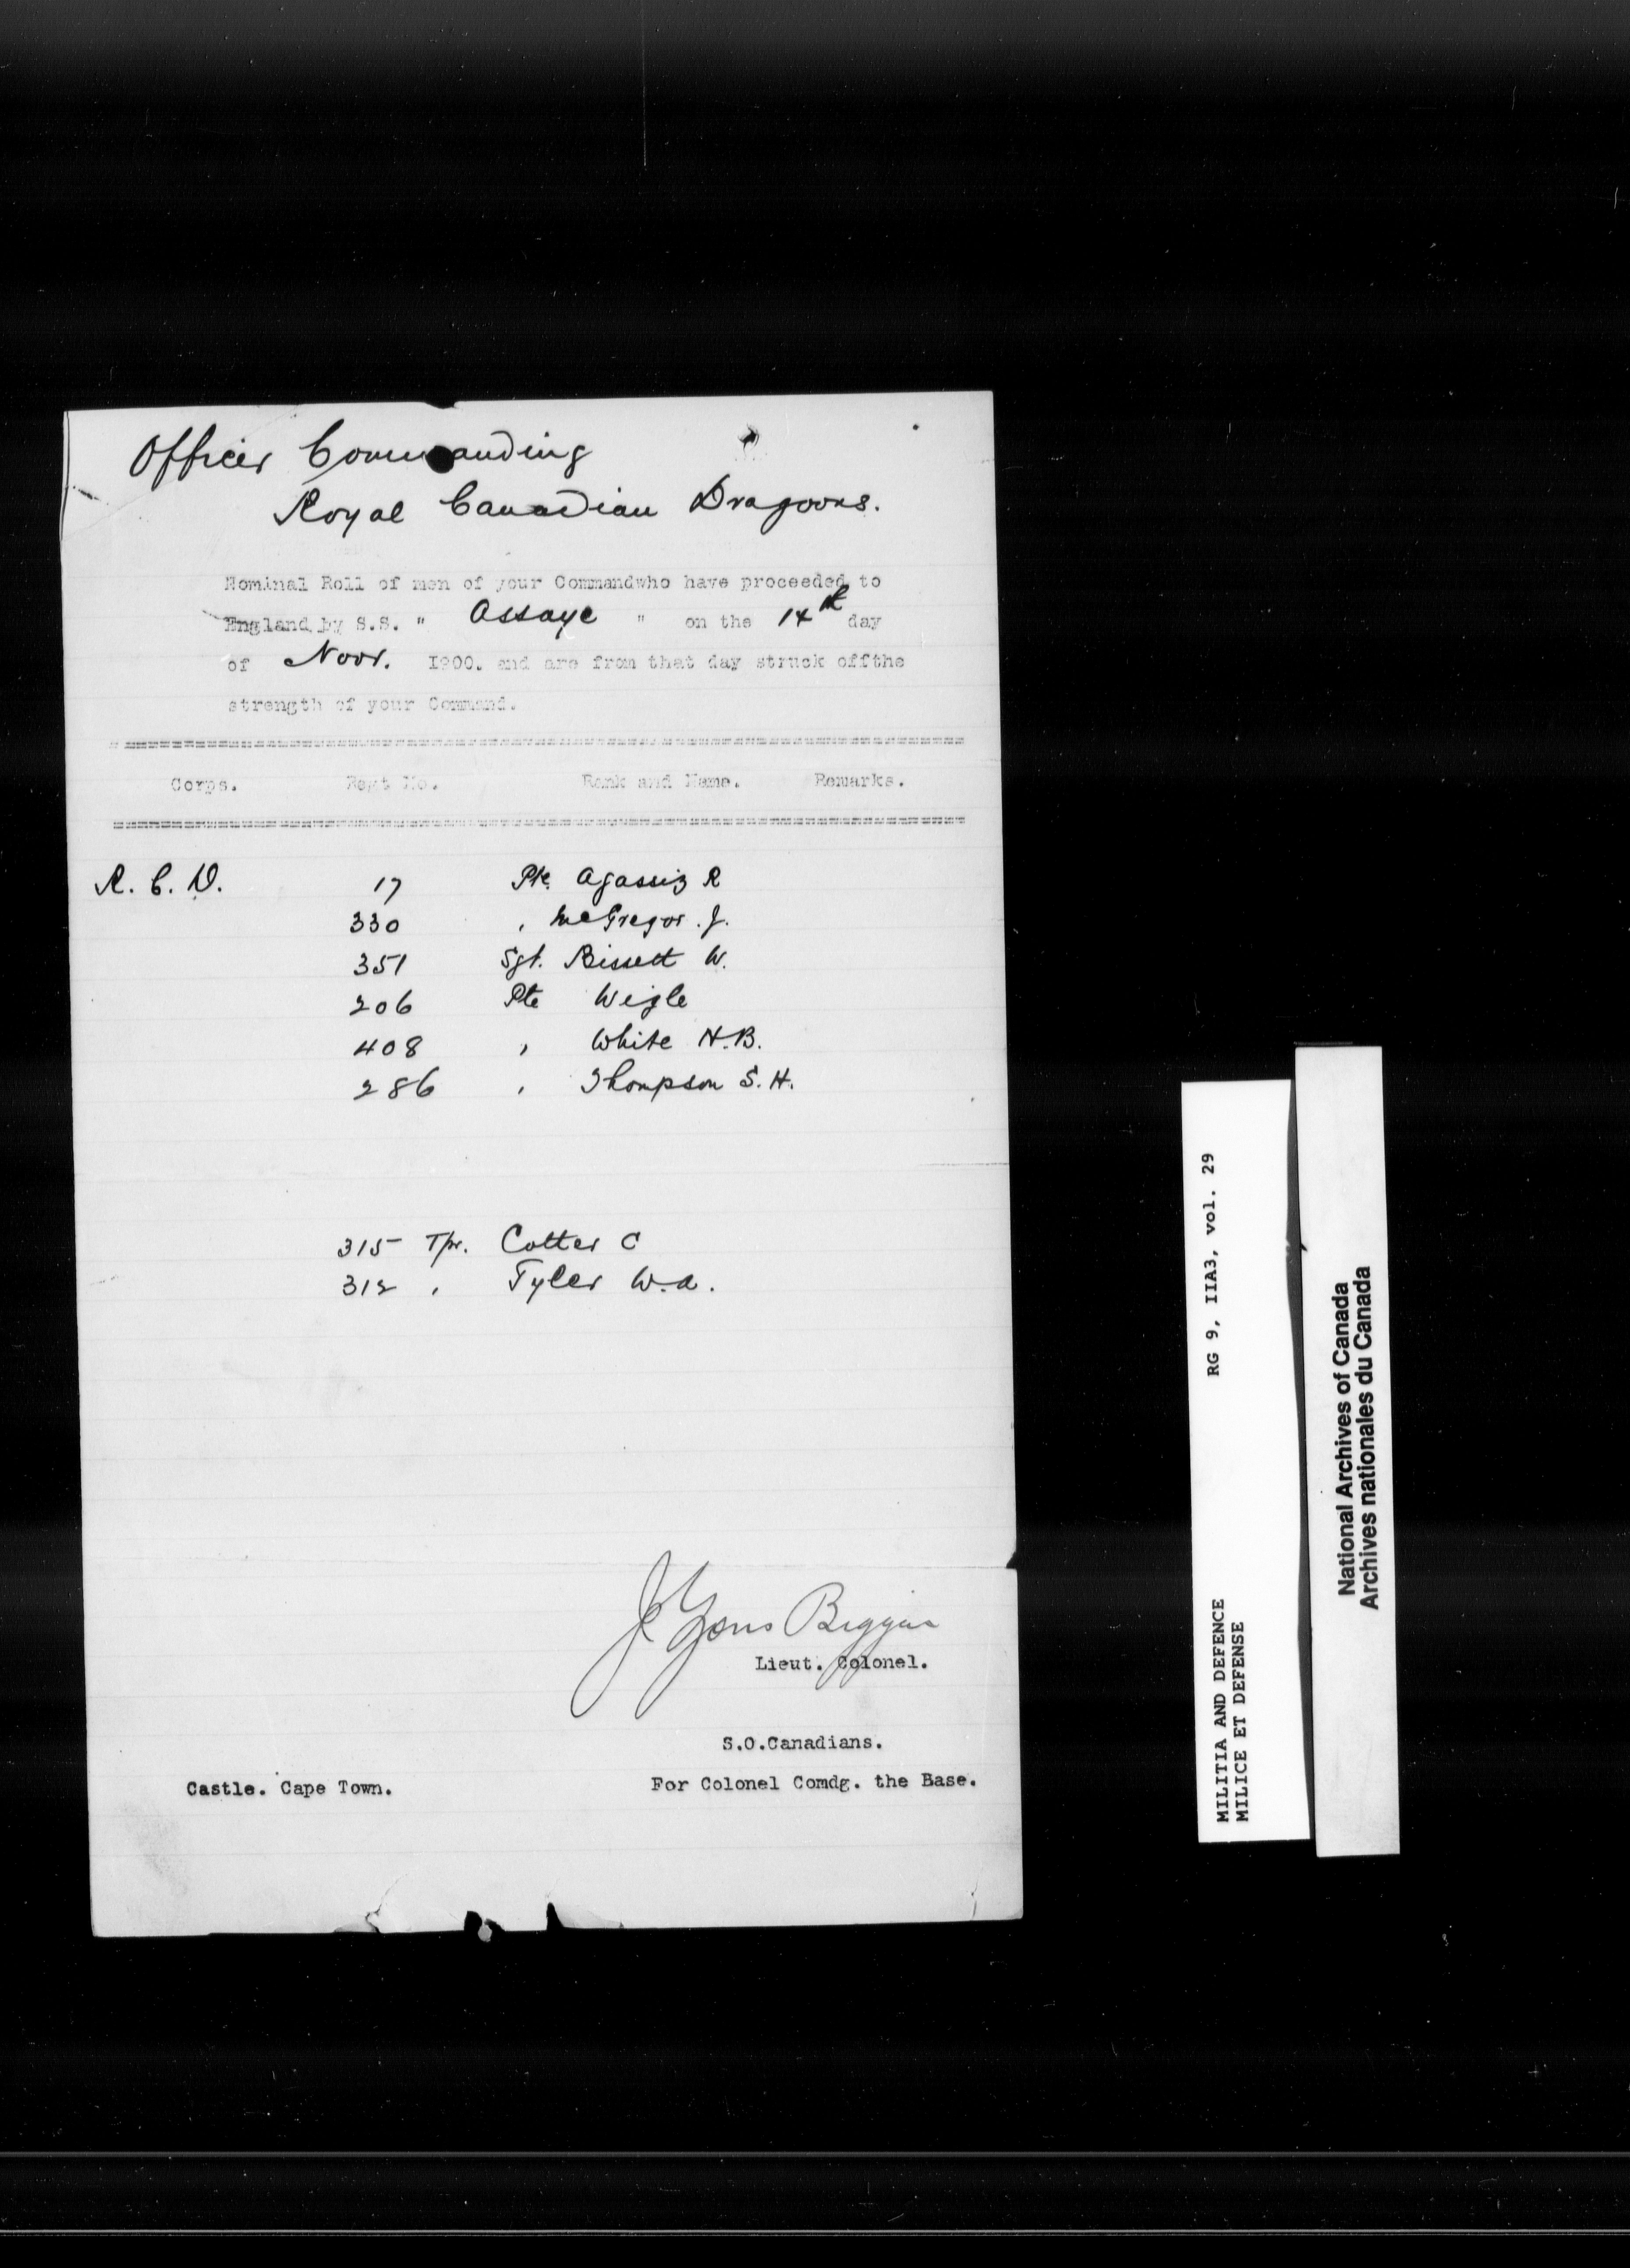 Officer Commanding
Royal Canadian Dragoons.
Nominal Roll of men of your Commandwho have proceeded to
England by S.S. " Assaye " on the 14th day
of Novr. I900. and are from that day struck offthe
strength of your Command.
Corps. Regt No. Rank and Name. Remarks.
R. C. D. 17 Pte. Agassiz R
330 , McGregor . J.
351 Sgt. Bissett W.
206 Pte Wigle
408 , White H.B.
286 , Thompson S. H.
315 Tpr. Cotter C
312 , Tyler W.A.
J Lyons Biggar
Lieut. Colonel.
S.O.Canadians.
Castle. Cape Town. For Colonel Comdg. the Base.
RG 9, IIA3, vol. 29
MILITIA AND DEFENCE
MILICE ET DEFENSE
National Archives of Canada
Archives nationales du Canada